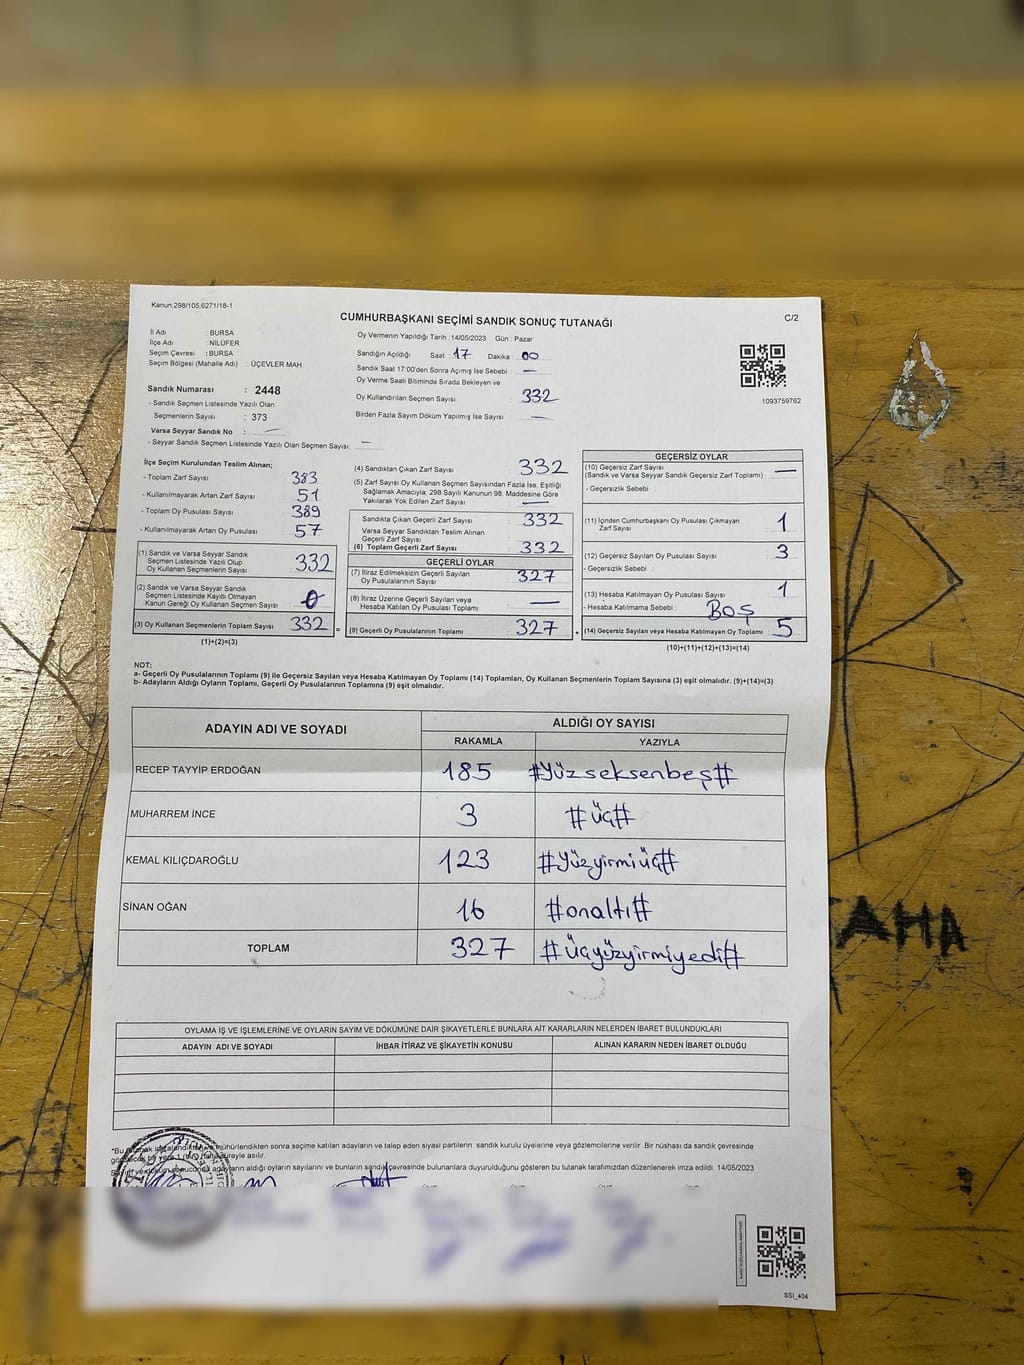 Kanun;298/105;6271/18-1
CUMHURBAŞKANI SEÇİMİ SANDIK SONUÇ TUTANAĞI
C/2
İl Adı : BURSA
İlçe Adı : NİLÜFER
Seçim Çevresi : BURSA
Seçim Bölgesi (Mahalle Adı) : ÜÇEVLER MAH
Sandık Numarası : 2448
- Sandık Seçmen Listesinde Yazılı Olan
Seçmenlerin Sayısı : 373
Varsa Seyyar Sandık No : —
- Seyyar Sandık Seçmen Listesinde Yazılı Olan Seçmen Sayısı: —
Oy Vermenin Yapıldığı Tarih :14/05/2023 Gün : Pazar
Sandığın Açıldığı Saat : 17 Dakika : 00
Sandık Saat 17:00'den Sonra Açılmış İse Sebebi : —
Oy Verme Saati Bitiminde Sırada Bekleyen ve
Oy Kullandırılan Seçmen Sayısı : 332
Birden Fazla Sayım Döküm Yapılmış İse Sayısı : —
1093759762
İlçe Seçim Kurulundan Teslim Alınan;
- Toplam Zarf Sayısı : 383
- Kullanılmayarak Artan Zarf Sayısı : 51
- Toplam Oy Pusulası Sayısı : 389
- Kullanılmayarak Artan Oy Pusulası : 57
(1) Sandık ve Varsa Seyyar Sandık
Seçmen Listesinde Yazılı Olup
Oy Kullanan Seçmenlerin Sayısı : 332
(2) Sandık ve Varsa Seyyar Sandık
Seçmen Listesinde Kayıtlı Olmayan
Kanun Gereği Oy Kullanan Seçmen Sayısı : 0
(3) Oy Kullanan Seçmenlerin Toplam Sayısı : 332 =
(1)+(2)=(3)
(4) Sandıktan Çıkan Zarf Sayısı : 332
(5) Zarf Sayısı Oy Kullanan Seçmen Sayısından Fazla İse, Eşitliği
Sağlamak Amacıyla, 298 Sayılı Kanunun 98. Maddesine Göre
Yakılarak Yok Edilen Zarf Sayısı : —
Sandıkta Çıkan Geçerli Zarf Sayısı : 332
Varsa Seyyar Sandıktan Teslim Alınan
Geçerli Zarf Sayısı :
(6) Toplam Geçerli Zarf Sayısı : 332
GEÇERLİ OYLAR
(7) İtiraz Edilmeksizin Geçerli Sayılan
Oy Pusulalarının Sayısı : 327
(8) İtiraz Üzerine Geçerli Sayılan veya
Hesaba Katılan Oy Pusulası Toplamı : —
(9) Geçerli Oy Pusulalarının Toplamı : 327 +
GEÇERSİZ OYLAR
(10) Geçersiz Zarf Sayısı
(Sandık ve Varsa Seyyar Sandık Geçersiz Zarf Toplamı) : —
- Geçersizlik Sebebi :
(11) İçinden Cumhurbaşkanı Oy Pusulası Çıkmayan
Zarf Sayısı : 1
(12) Geçersiz Sayılan Oy Pusulası Sayısı : 3
- Geçersizlik Sebebi :
(13) Hesaba Katılmayan Oy Pusulası Sayısı : 1
- Hesaba Katılmama Sebebi : BOŞ
(14) Geçersiz Sayılan veya Hesaba Katılmayan Oy Toplamı : 5
(10)+(11)+(12)+(13)=(14)
NOT:
a- Geçerli Oy Pusulalarının Toplamı (9) ile Geçersiz Sayılan veya Hesaba Katılmayan Oy Toplamı (14) Toplamları, Oy Kullanan Seçmenlerin Toplam Sayısına (3) eşit olmalıdır. (9)+(14)=(3)
b- Adayların Aldığı Oyların Toplamı, Geçerli Oy Pusulalarının Toplamına (9) eşit olmalıdır.
ADAYIN ADI VE SOYADI ALDIĞI OY SAYISI
RAKAMLA YAZIYLA
RECEP TAYYİP ERDOĞAN 185 #Yüzseksenbeş#
MUHARREM İNCE 3 #üç#
KEMAL KILIÇDAROĞLU 123 #Yüzyirmiüç#
SİNAN OĞAN 16 #onaltı#
TOPLAM 327 #Üçyüzyirmiyedi#
OYLAMA İŞ VE İŞLEMLERİNE VE OYLARIN SAYIM VE DÖKÜMÜNE DAİR ŞİKAYETLERLE BUNLARA AİT KARARLARIN NELERDEN İBARET BULUNDUKLARI
ADAYIN ADI VE SOYADI İHBAR İTİRAZ VE ŞİKAYETİN KONUSU ALINAN KARARIN NEDEN İBARET OLDUĞU
mühürlendikten sonra seçime katılan adayların ve talep eden siyasi partilerin sandık kurulu üyelerine veya gözlemcilerine verilir. Bir nüshası da sandık çevresinde
asılır.
adayların aldığı oyların sayılarını ve bunların sandık çevresinde bulunanlara duyurulduğunu gösteren bu tutanak tarafımızdan düzenlenerek imza edildi. 14/05/2023
SSİ_404
TAHA